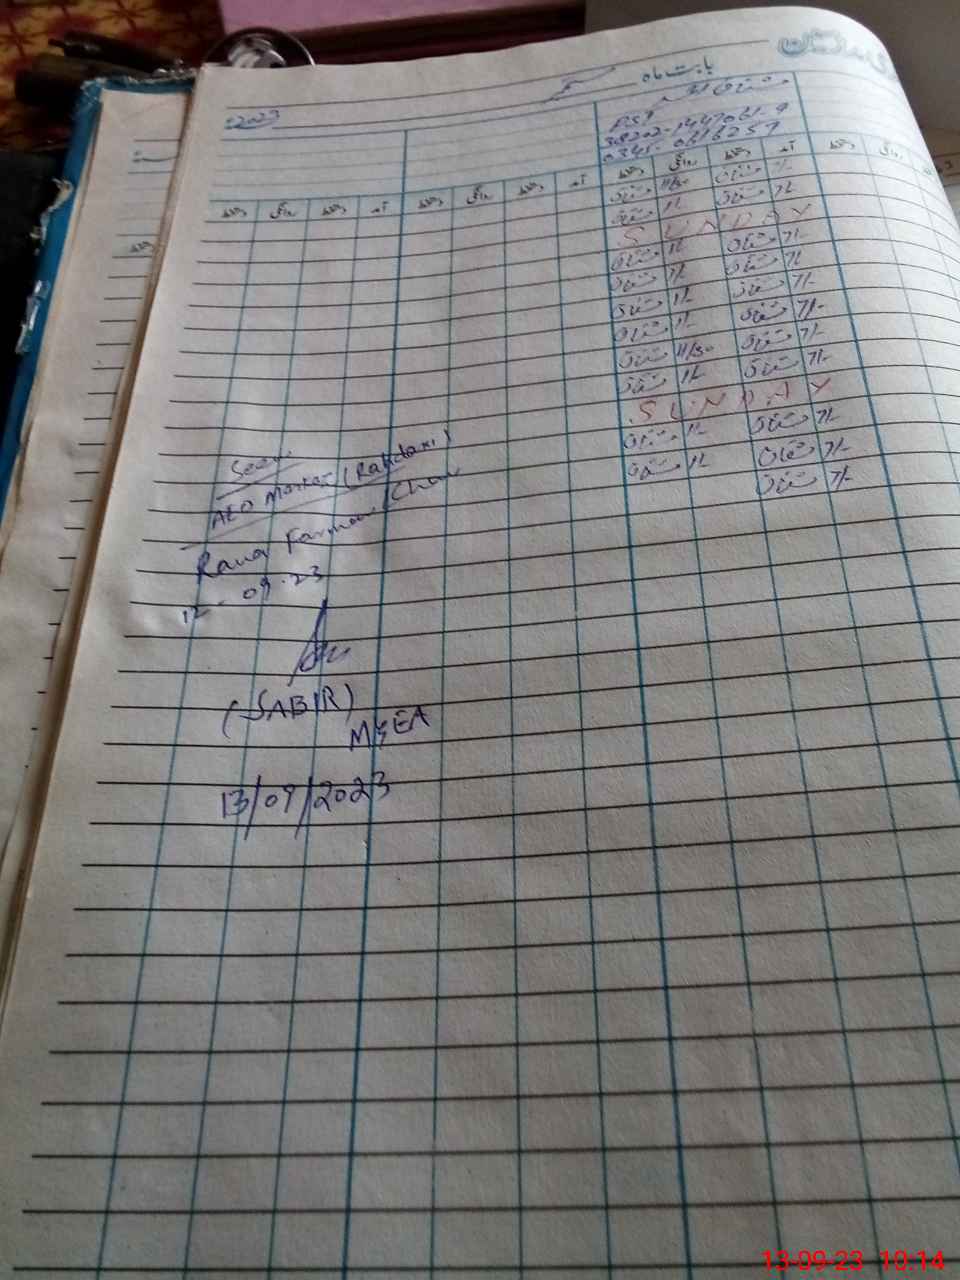 بابت ماہ ستمبر 2023ء
مشتاق احمد
PST
38202-1447061-9
0345-0616259
دستخط روانگی دستخط آمد دستخط روانگی دستخط آمد دستخط روانگی دستخط آمد دستخط روانگی
مشتاق 11/30 مشتاق 7/-
مشتاق 1/- مشتاق 7/-
SUNDAY
مشتاق 1/- مشتاق 7/-
مشتاق 1/- مشتاق 7/-
مشتاق 1/- مشتاق 7/-
مشتاق 1/- مشتاق 7/-
مشتاق 11/30 مشتاق 7/-
مشتاق 1/- مشتاق 7/-
SUNDAY
مشتاق 1/- مشتاق 7/-
مشتاق 1/- مشتاق 7/-
مشتاق 7/-
Seen
AEO Markaz (Rakhdari)
Rana Farman
12-09-23
(SABIR)
MEA
13/09/2023
13-09-23 10:14